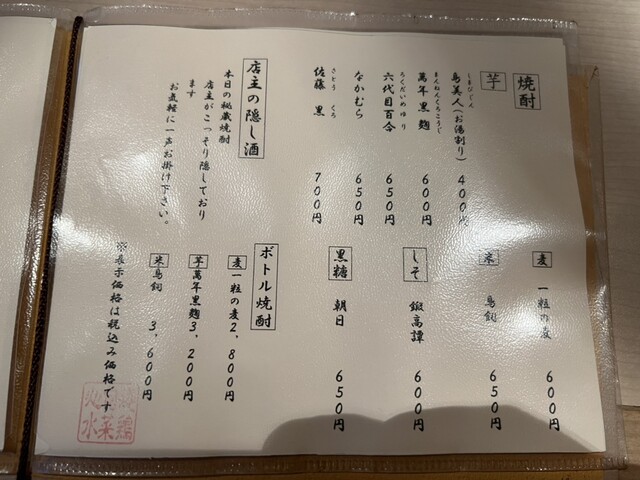 焼酎
芋
しまびじん
島美人(お湯割り) 400円
まんねんくろこうじ
萬年黒麹 600円
ろくだいめゆり
六代目百合 650円
なかむら 650円
さとう くろ
佐藤 黒 700円
麦
一粒の麦 600円
米
鳥飼 650円
しそ
鍛高譚 600円
黒糖
朝日 650円
店主の隠し酒
本日の秘蔵焼酎
店主がこっそり隠しており
ます
お気軽に一声お掛け下さい。
ボトル焼酎
麦 一粒の麦 2,800円
芋 萬年黒麹 3,200円
米 鳥飼 3,600円
※表示価格は税込み価格です